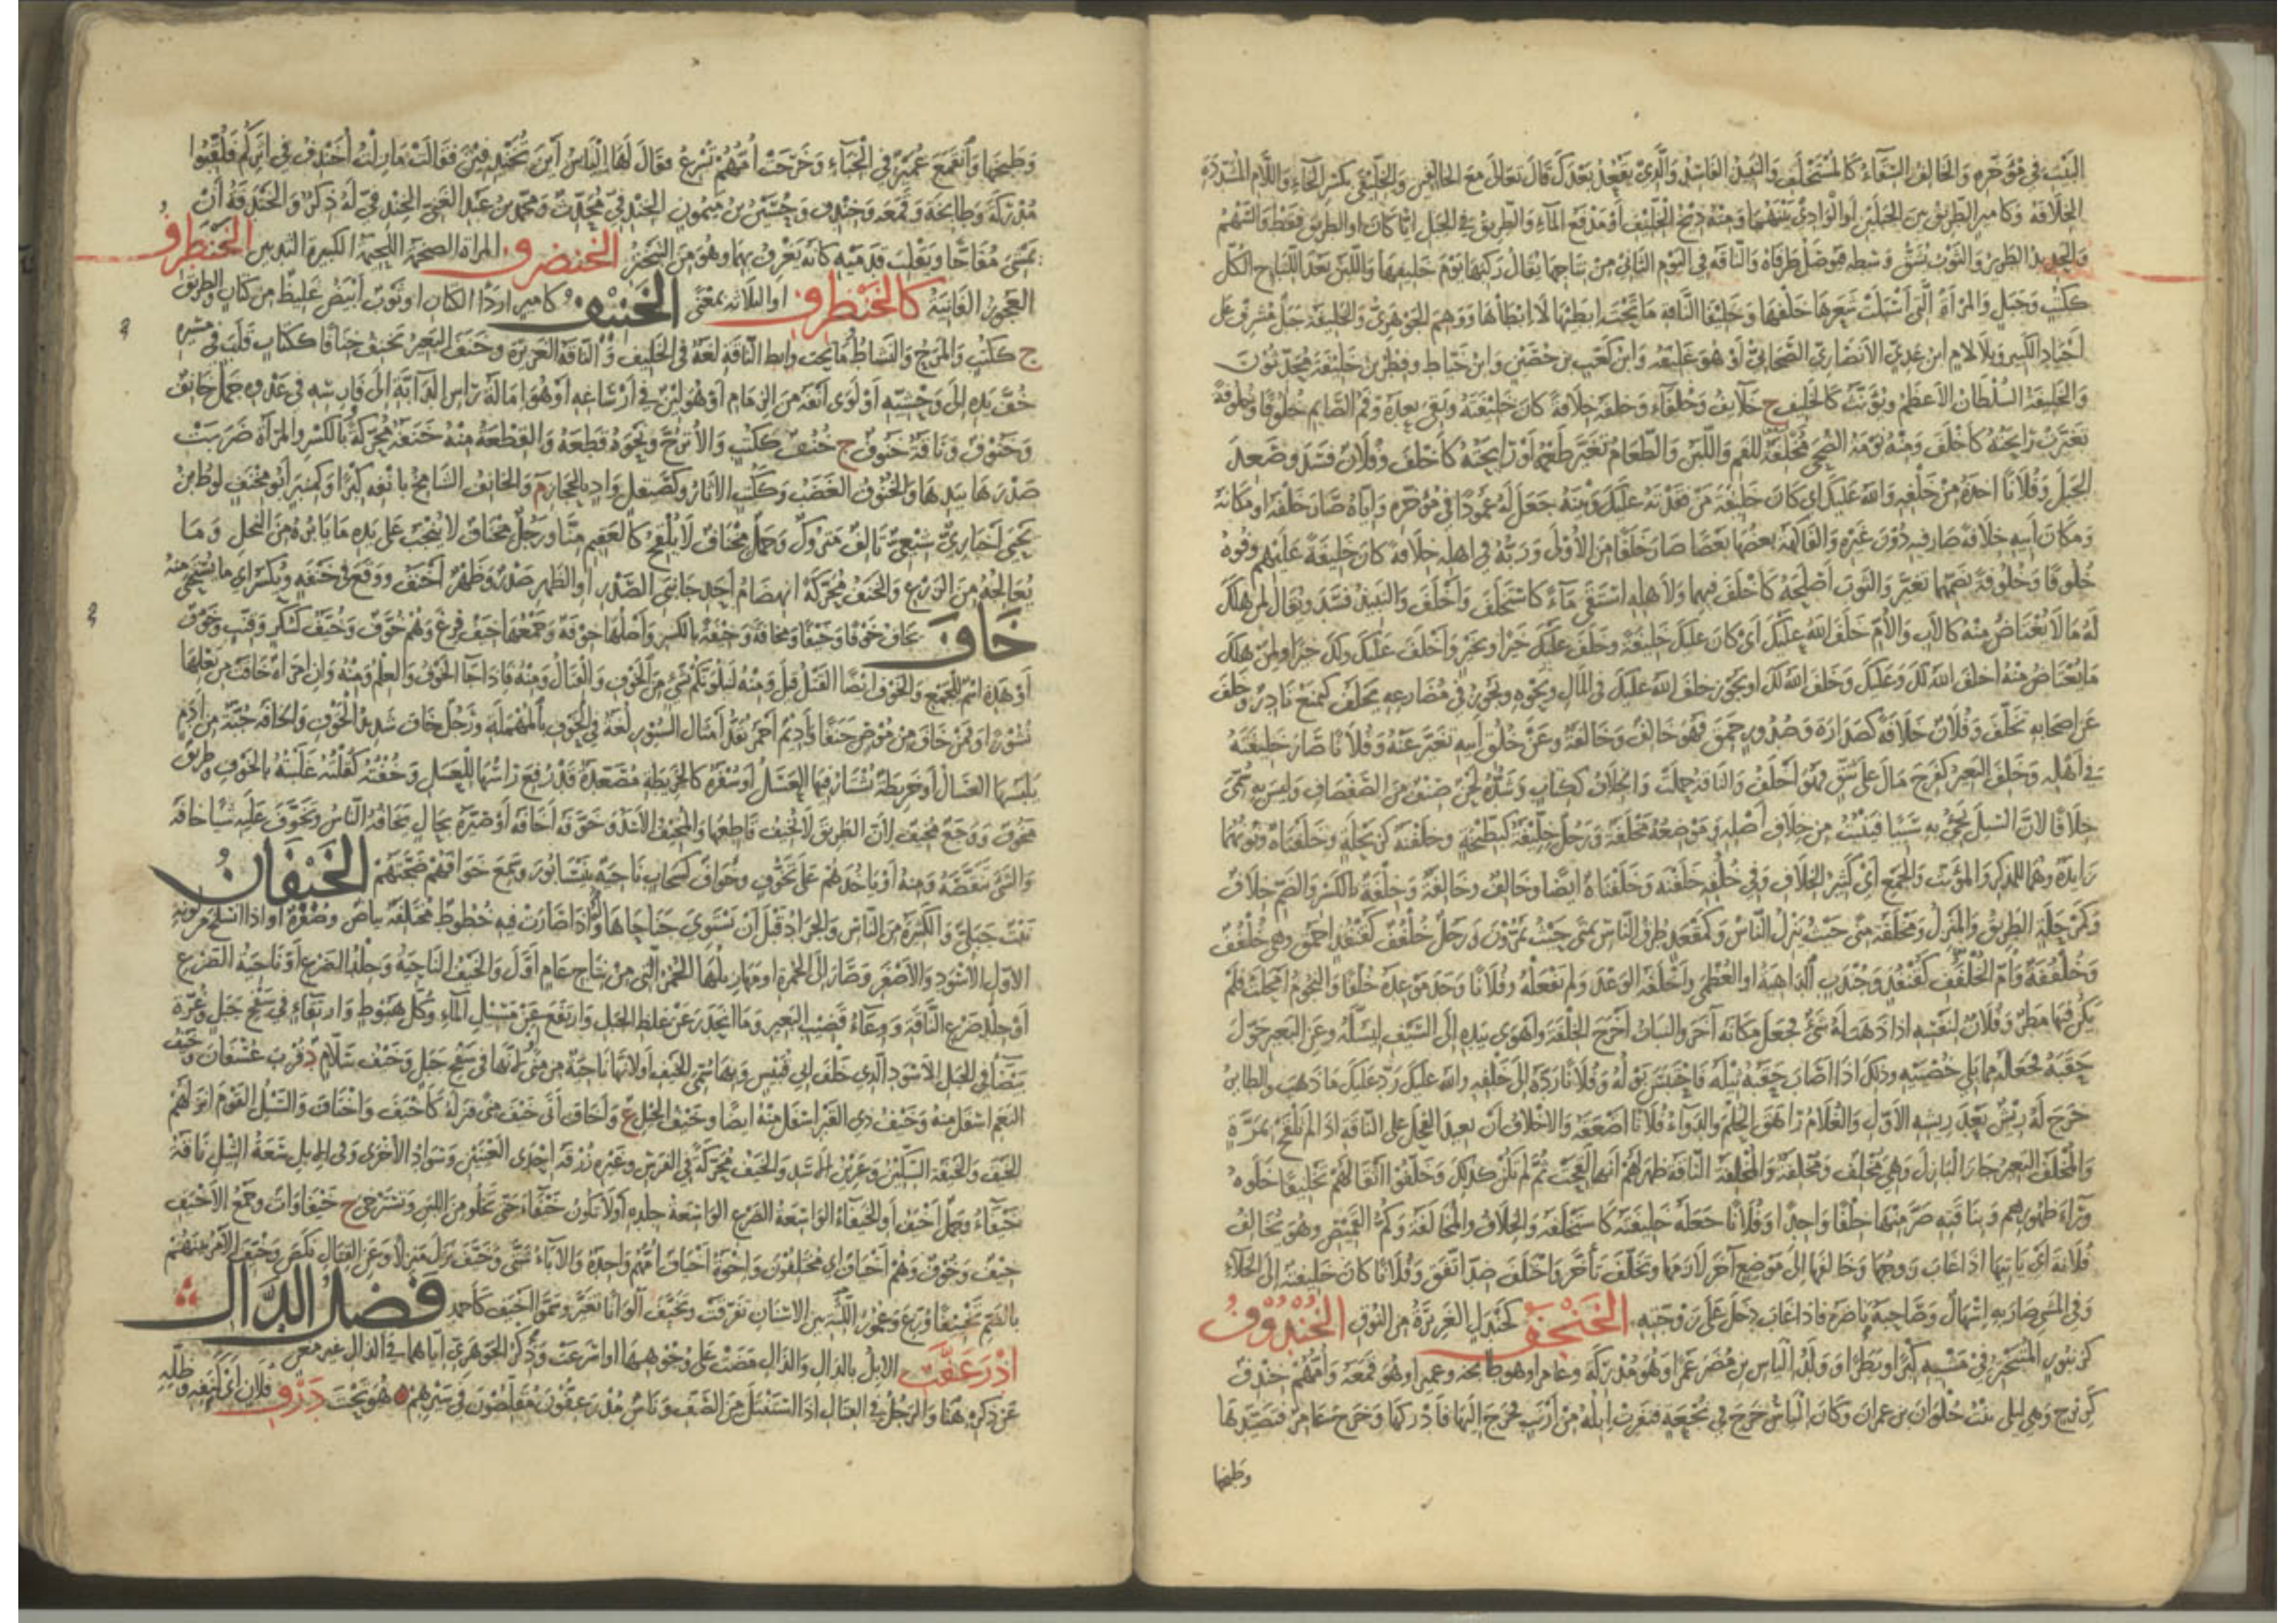 البيت في مؤخره والخالفة السقاء كالمستخلف والنبيذ الفاسد والذي يقعد بعدك قال تعالى مع الخالفين والخليفى بكسر الخاء واللام المشددة
الخلافة وكامير الطريق بين الجبلين او الوادي بينهما ومنه ذيخ الخليف او مدفع الماء والطريق في الجبل ايا كان او الطريق فقط والسهم
والحديد الطرير والثوب يشق وسطه فيوصل طرفاه والناقة في اليوم الثاني من نتاجها يقال ركبها يوم خليفها واللبن بعد اللباء ج الكل
ككتب وجبل والمراة التي اسبلت شعرها خلفها وخليفا الناقة ما تحت ابطيها لا ابطاها ووهم الجوهري والخليفة جبل مشرف على
اجياد الكبير وبلا لام ابن عدي الانصاري الصحابي او هو عليفة وابن كعب بن حصين وابن خياط وفطر بن خليفة محدثون
والخليفة السلطان الاعظم ويؤنث كالخليف ج خلائف وخلفاء وخلفه خلافة كان خليفته وبقي بعده وفم الصائم خلوفا وخلوفة
تغيرت رائحته كاخلف ومنه نومة الضحى مخلفة للفم واللبن والطعام تغير طعمه او رائحته كاخلف وفلان فسد وصعد
الجبل وفلانا اخذه من خلفه والله عليك اي كان خليفة من فقدته عليك وبيته جعل له عمودا في مؤخره واباه صار خلفه او مكانه
ومكان ابيه خلافة صار فيه دون غيره والفاكهة بعضها بعضا صار خلفا من الاولى وربه في اهله خلافة كان خليفة عليهم وفوه
خلوفا وخلوفة بضمهما تغير والثوب اصلحه كاخلف فيهما ولاهله استقى ماء كاستخلف واخلف والنبيذ فسد ويقال لمن هلك
له ما لا يعتاض منه كالاب والام خلف الله عليك اي كان عليك خليفة وخلف عليك خيرا وبخير واخلف عليك ولك خيرا ولمن هلك
ما يعتاض منه اخلف الله لك وعليك وخلف الله لك او يجوز خلف الله عليك في المال ونحوه ويجوز في مضارعه يخلف كيمنع نادر وخلف
عن اصحابه تخلف وفلان خلافة كصدارة وصدور حمق فهو خالف وخالفة وعن خلق ابيه تغير عنه وفلانا صار خليفته
في اهله وخلف البعير كفرح مال على شق فهو اخلف والناقة حملت والخلاف ككتاب وشده لحن صنف من الصفصاف وليس به سمي
خلافا لان السيل يجيء به سبيا فينبت من خلاف اصله وموضعه مخلفة ورجل خليفة كبطيخة وخلفنة كربحلة وخلفناة ونونهما
زائدة وهما للمذكر والمؤنث والجمع اي كثير الخلاف وفي خلقه خلفنة وخلفناة ايضا وخالف وخالفة وخلفة بالكسر والضم خلاف
وكمرحلة الطريق والمنزل ومخلفة منى حيث ينزل الناس وكمقعد طرق الناس بمنى حيث يمرون ورجل خلفف كقنفذ احمق وهي خلفف
وخلففة وام الخلفف كقنفذ وجندب الداهية او العظمى واخلفه الوعد ولم يفعله وفلانا وجد موعده خلفا والنجوم امحلت فلم
يكن فيها مطر وفلان لنفسه اذا ذهب له شيء فجعل مكانه آخر والنبات اخرج الخلفة واهوى بيده الى السيف ليسله وعن البعير حول
حقبه فجعله مما يلي خصيتيه وذلك اذا اصاب حقبه ثيله فاحتبس بوله وفلانا رده الى خلفه والله عليك رد عليك ما ذهب والطائر
خرج له ريش بعد ريشه الاول والغلام راهق الحلم والدواء فلانا اضعفه والاخلاف ان يعيد الفحل على الناقة اذا لم تلقح بمرة
والمخلف البعير جاز البازل وهي مخلف ومخلفة والمخلفة الناقة ظهر لهم انها لقحت ثم لم تكن كذلك وخلفوا اثقالهم تخليفا خلوه
وراء ظهورهم وبناقته صر منها خلفا واحدا وفلانا جعله خليفته كاستخلفه والخلاف والمخالفة وكم القميص وهو يخالف
فلانة اي ياتيها اذا غاب زوجها وخالفها الى موضع آخر لازمها وتخلف تأخر واختلف ضد اتفق وفلانا كان خليفته والى الخلاء
وفي المشي صار به اسهال وصاحبه باصره فاذا غاب دخل على زوجته الخنجف كجندل الغزيرة من النوق الخندوف
كزنبور المتبختر في مشيه كبرا وبطرا وولد الياس بن مضر عمرا وهو مدركة وعامرا وهو طابخة وعميرا وهو قمعة وامهم خندف
كزبرج وهي ليلى بنت حلوان بن عمران وكان الياس خرج في نجعة فنفرت ابله من ارنب فخرج اليها فادركها وخرج عامر فتصيدها
وطبخها
وطبخها وانقمع عمير في الخباء وخرجت امهم تسرع فقال لها الياس اين تخندفين فقالت ما زلت اخندف في اثركم فلقبوا
مدركة وطابخة وقمعة وخندف وحسين بن ميمون الخندفي محدث ومحمد بن عبد الغني الخندفي له ذكر والخندفة ان
يمشي مفاجا ويقلب قدميه كانه يغرف بهما وهو من التبختر الخنضرف المراة الضخمة اللحيمة الكبيرة الثديين الخنطرف
العجوز الفانية كالخنظرف او الثلاثة بمعنى الخنيف كامير اردأ الكتان او ثوب ابيض غليظ من كتان والطريق
ج ككتب والمرح والنشاط وما تحت ابط الناقة لغة في الخليف والناقة الغزيرة وخنف البعير يخنف خنافا ككتاب قلب في مشيه
خف يده الى وحشيه او لوى انفه من الزمام او هو لين في ارساغه او هو امالة راس الدابة الى فارسه في عدوه جمل خانف
وخنوف وناقة خنوف ج خنف ككتب والاترج ونحوه قطعه والقطعة منه خنفة محركة بالكسر والمراة ضربت
صدرها بيدها والخنوف الغضب وككتب الاثار وكصيقل واد بالحجاز م والخانف الشامخ بانفه كبرا وكمنبر ابو مخنف لوط بن
يحيى اخباري شيعي تالف متروك وجمل مخناف لا يلقح كالعقيم منا ورجل مخناف لا ينجب على يده ما يابره من النخل وما
يعالجه من الزرع والخنف محركة انهضام احد جانبي الصدر او الظهر صدر وظهر اخنف ووقع في خنفة ويكسر اي ما يستحى منه
خاف يخاف خوفا وخيفا ومخافة وخيفة بالكسر واصلها خوفة وجمعها خيف فزع وهم خوف وخيف كسكر وقنب وخوف
او هذه اسم للجمع والخوف ايضا القتل قيل ومنه لنبلونكم بشيء من الخوف والقتال ومنه فاذا جاء الخوف والعلم ومنه وان امراة خافت من بعلها
نشوزا وفمن خاف من موص جنفا واديم احمر يقد امثال السيور لغة في الحوف بالمهملة ورجل خاف شديد الخوف والخافة جبة من ادم
يلبسها العسال او خريطة يشتار فيها العسل او سفرة كالخريطة مصعدة قد رفع راسها للعسل وخفته كقلته غلبته بالخوف وطريق
مخوف ووجع مخيف لان الطريق لا تخيف قاطعها والمخيف الاسد وخوفه اخافه او صيره بحال يخافه الناس وتخوف عليه شيا خافه
والشيء تنقصه ومنه او ياخذهم على تخوف وخواف كسحاب ناحية بنيسابور وسمع خوافهم ضجتهم الخيفان
نبت جبلي والكثرة من الناس والجراد قبل ان تستوي جناحاها واذا صارت فيه خطوط مختلفة بياض وصفرة او اذا انسلخ من لونه
الاول الاسود والاصفر وصار الى الحمرة او مهازيلها الحمر التي من نتاج عام اول والخيف الناحية وجلد الضرع او ناحية الضرع
او جلد ضرع الناقة ووعاء قضيب البعير وما انحدر عن غلظ الجبل وارتفع عن مسيل الماء وكل هبوط وارتقاء في سفح جبل وغرة
بيضاء في الجبل الاسود الذي خلف ابي قبيس وبها سمي الخيف او لانها ناحية من منى او لانها في سفح جبل وخيف سلام د قرب عسفان وخيف
النعم اسفل منه وخيف ذي القبر اسفل منه ايضا وخيف الخيل ع واخاف اتى خيف منى فنزله كاخيف واختاف والسيل القوم انزلهم
الخيف والخيفة السكين وعرين الاسد والخيف محركة في الفرس وغيره زرقة احدى العينين وسواد الاخرى وفي الابل سعة الثيل ناقة
خيفاء وجمل اخيف والخيفاء الواسعة الضرع الواسعة جلده او لا تكون خيفاء حتى تخلو من اللبن وتسترخي ج خيفاوات وجمع الاخيف
خيف وخوف وهم اخياف اي مختلفون واخوة اخياف امهم واحدة والاباء شتى وخيف نزل منزلا وعن القتال نكص وخيف الامر بينهم
بالضم تخييفا وزع وعمور اللثة بين الاسنان تفرقت وتخيف الوانا تغير وسموا اخيف كاحمد فصل الدال
ادرعفت الابل بالدال والذال مضت على وجوهها او اسرعت وذكر الجوهري اياهما في الذال غير مغن
عن ذكره هنا والرجل في القتال اذا استنتل من الصف وناس مدرعفون مقلصون في سيرهم هو تحت درف فلان اي كنفه وظله